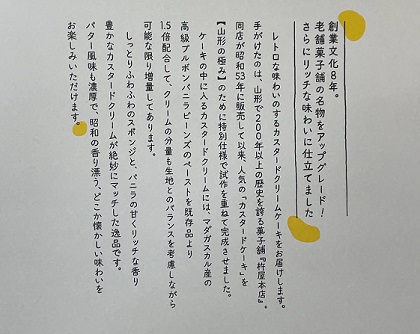 創業文化8年。
老舗菓子舗の名物をアップグレード！
さらにリッチな味わいに仕立てました
レトロな味わいのするカスタードクリームケーキをお届けします。
手がけたのは、山形で200年以上の歴史を誇る菓子舗『杵屋本店』。
同店が昭和53年に販売して以来、人気の「カスタードケーキ」を
【山形の極み】のために特別仕様で試作を重ねて完成させました。
ケーキの中に入るカスタードクリームには、マダガスカル産の
高級ブルボンバニラビーンズのペーストを既存品より
1.5倍配合して、クリームの分量も生地とのバランスを考慮しながら
可能な限り増量してあります。
しっとりふわふわのスポンジと、バニラの甘くリッチな香り
豊かなカスタードクリームが絶妙にマッチした逸品です。
バター風味も濃厚で、昭和の香り漂う、どこか懐かしい味わいを
お楽しみいただけます。